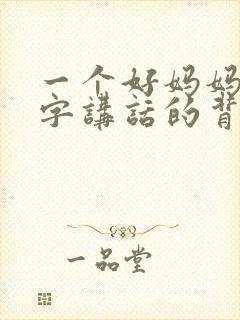 一个好妈妈
字講話的背
一品堂